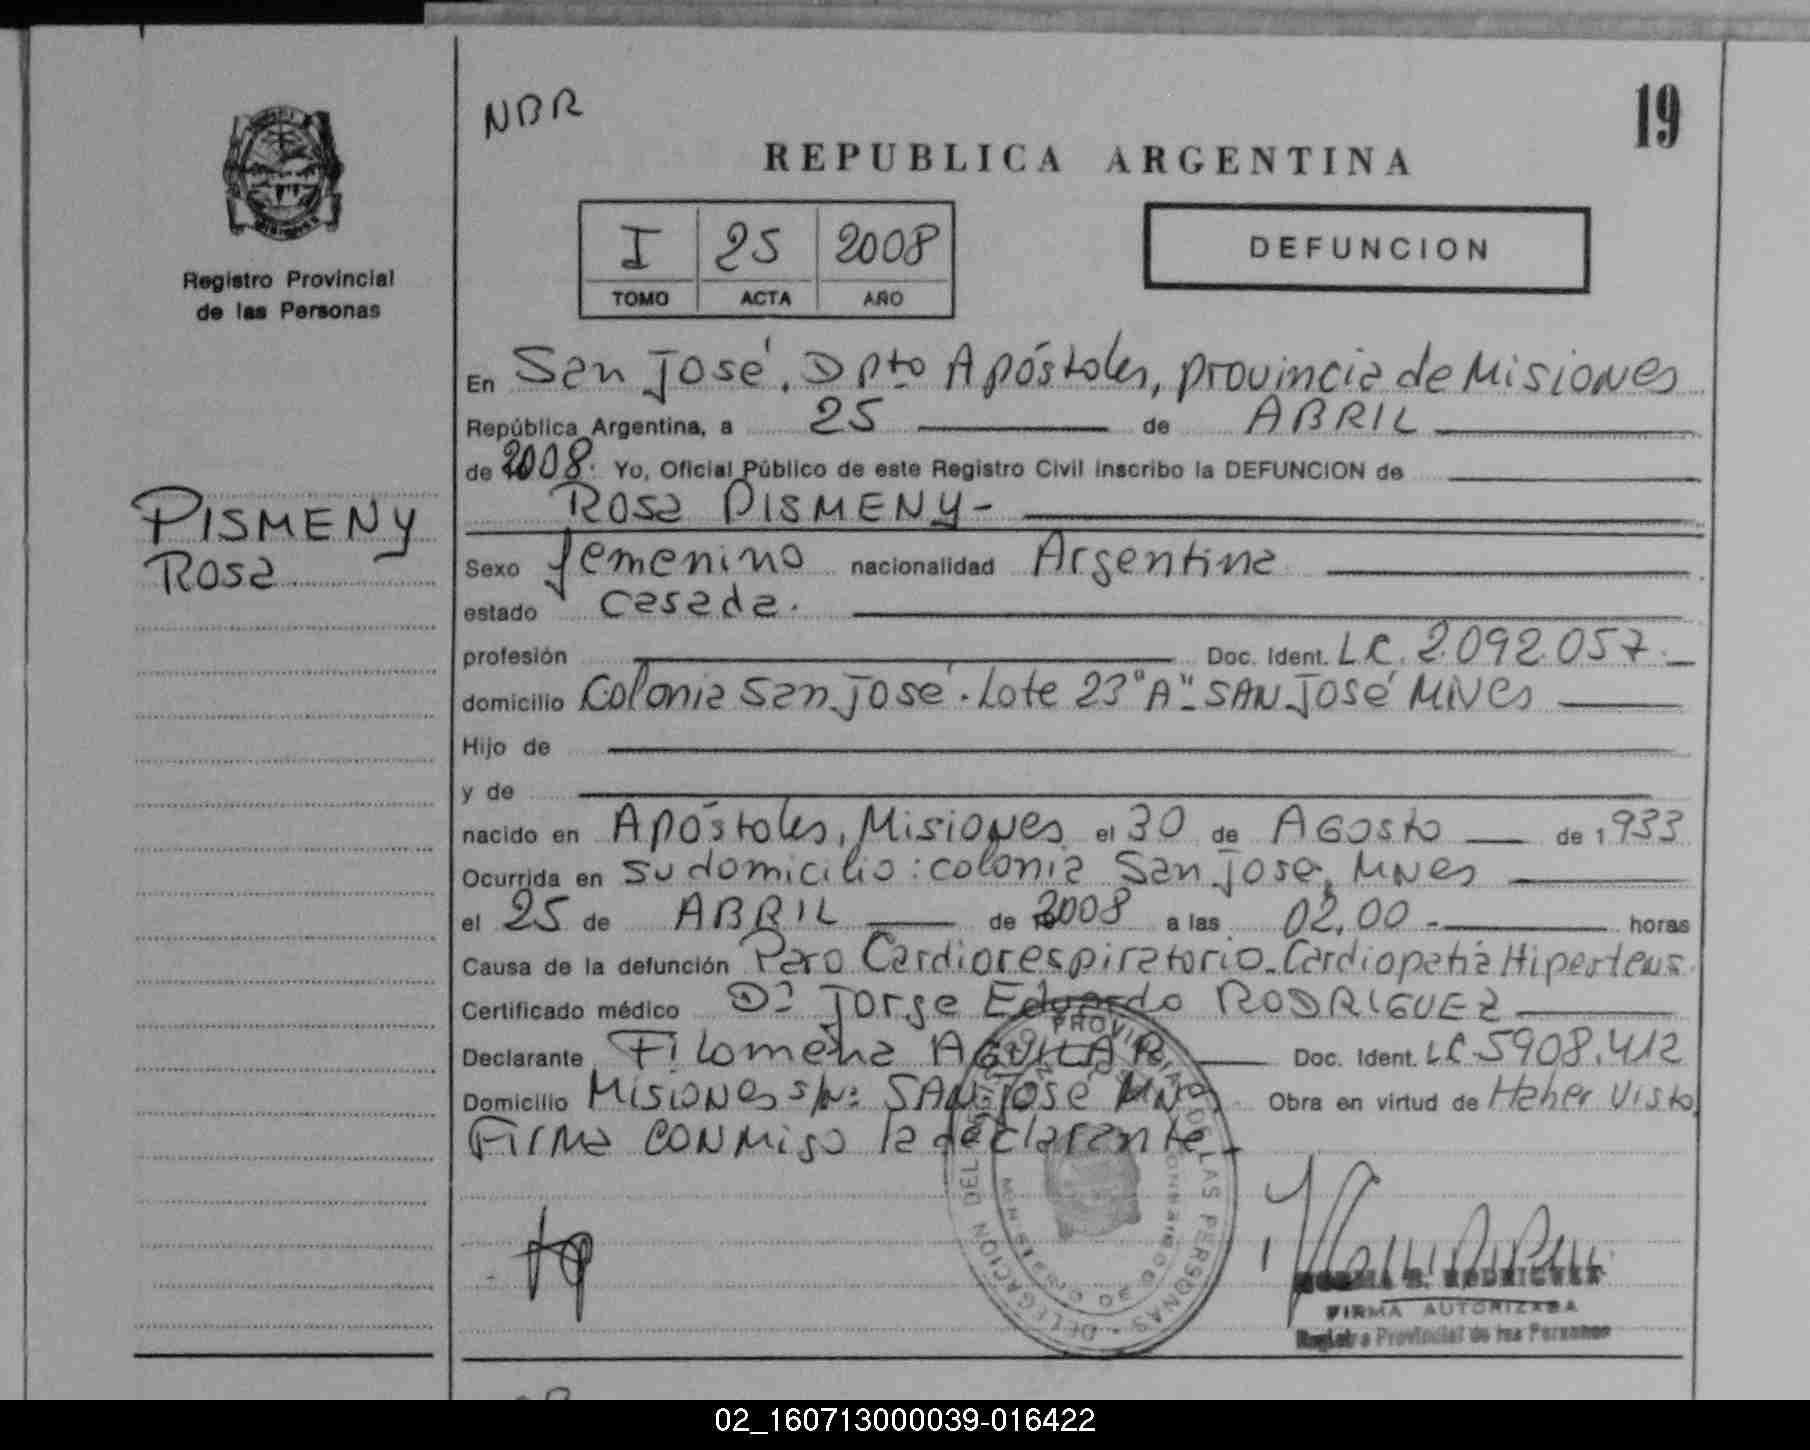 NBR
19
REPUBLICA ARGENTINA
Registro Provincial
de las Personas
I 25 2008
TOMO ACTA AÑO
DEFUNCION
En San José, Dpto Apóstoles, provincia de Misiones
República Argentina, a 25 de ABRIL
de 2008. Yo, Oficial Público de este Registro Civil inscribo la DEFUNCION de
Rosa PISMENY-
PISMENY
Rosa
Sexo femenino nacionalidad Argentina
estado casada.
profesión Doc. Ident. LC. 2.092.057.
domicilio Colonia San José. Lote 23 "A" - SAN José MNES
Hijo de
y de
nacido en Apóstoles, Misiones el 30 de Agosto de 1933
Ocurrida en su domicilio: colonia San José, MNES
el 25 de ABRIL de 2008 a las 02,00 - horas
Causa de la defunción Paro Cardiorespiratorio - Cardiopatía Hipertens.
Certificado médico Dr Jorge Eduardo RODRIGUEZ
Declarante Filomena AGUILAR Doc. Ident. LC 5908.412
Domicilio Misiones s/Nº SAN José MNES Obra en virtud de Haber visto
Firma conmigo la declarante -
REGISTRO PROVINCIAL DE LAS PERSONAS - DELEGACION DEL
MISIONES
NORMA B. RODRIGUEZ
FIRMA AUTORIZADA
Registro Provincial de las Personas
02_160713000039-016422